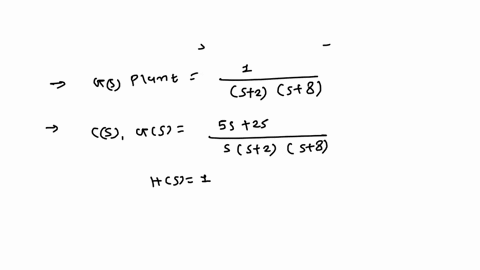 → G(s) Plant = 1 / (s+2) (s+8)
→ C(s). G(s) = 5s + 25 / s (s+2) (s+8)
H(s) = 1